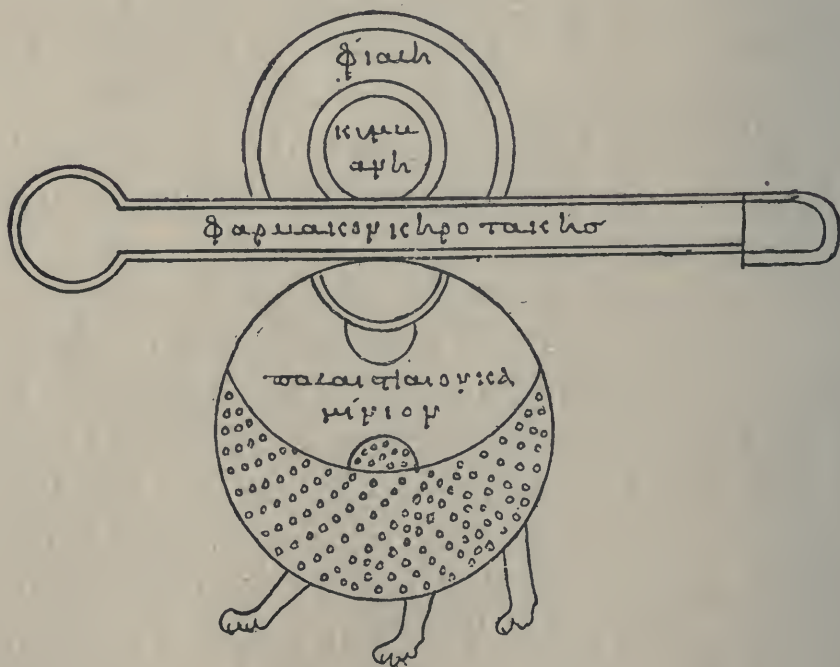 φίαλη
φαρμακον κηροτακησ
παλαιστιαιον κα
μίνιον